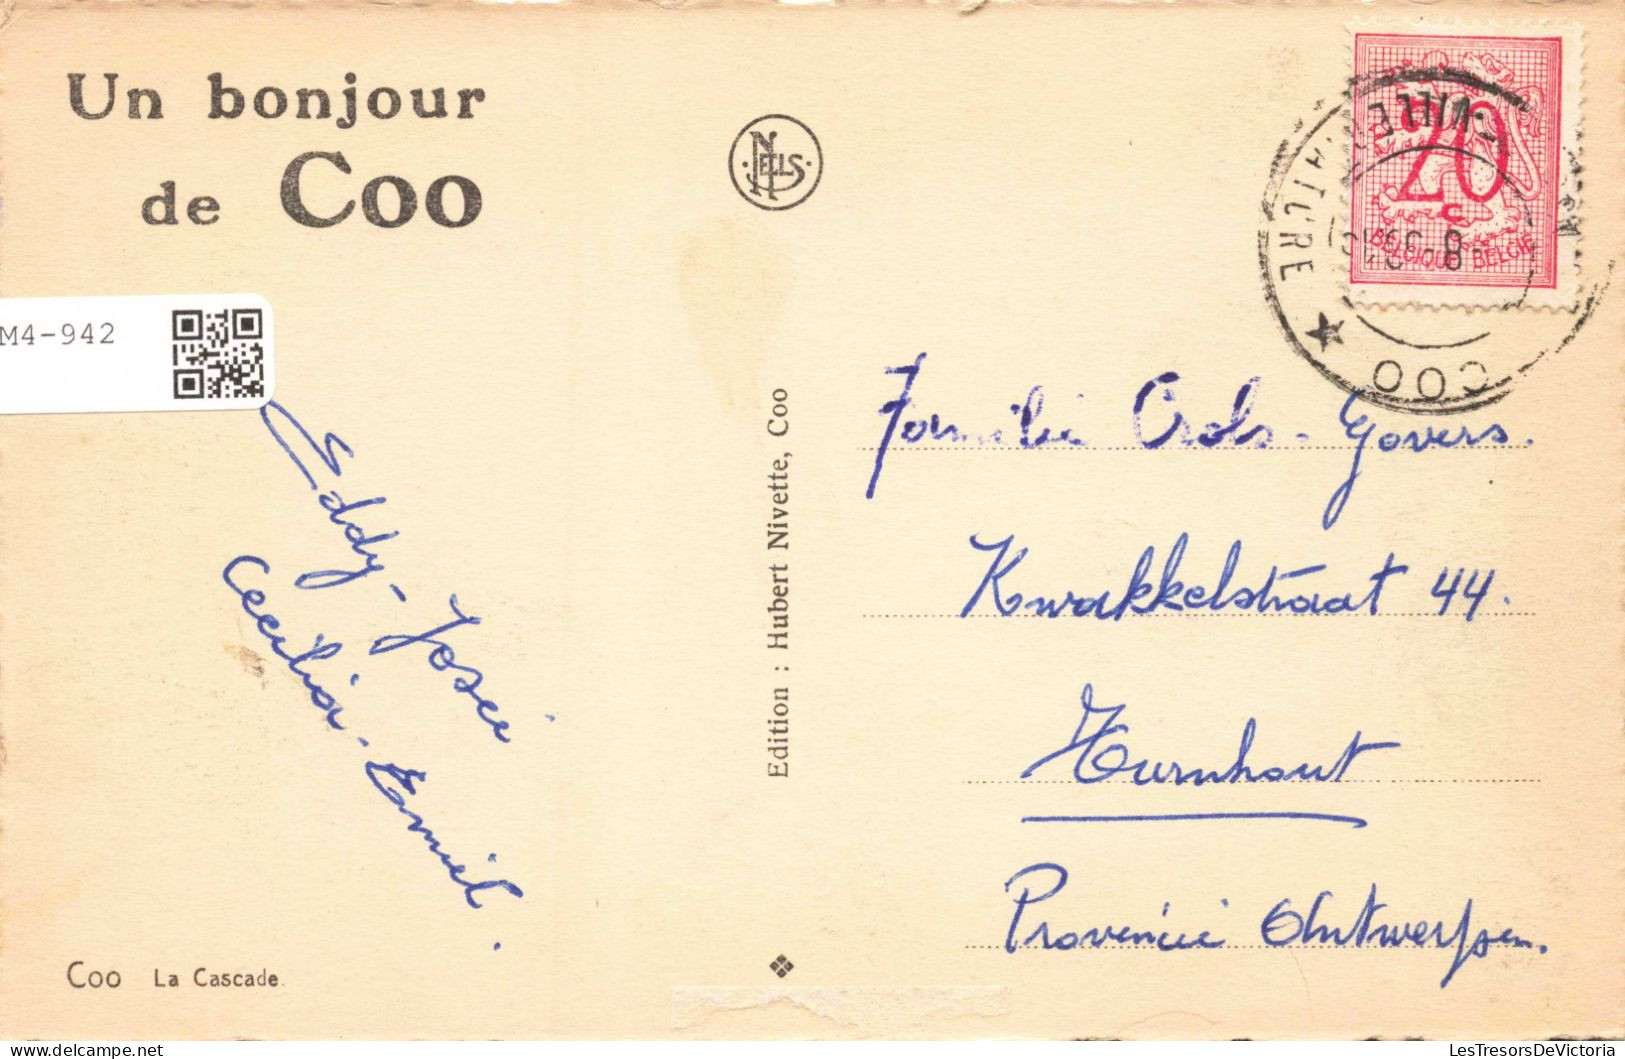 Un bonjour
de Coo
NELS
M4-942
Eddy - José
Cecilia - Emiel.
Coo La Cascade.
Edition : Hubert Nivette, Coo
20
C
BELGIQUE BELGIË
COO
Familie Crols - Govers.
Kwakkelstraat 44.
Turnhout
Provincie Antwerpen.
www.LesTresorsDeVictoria.com